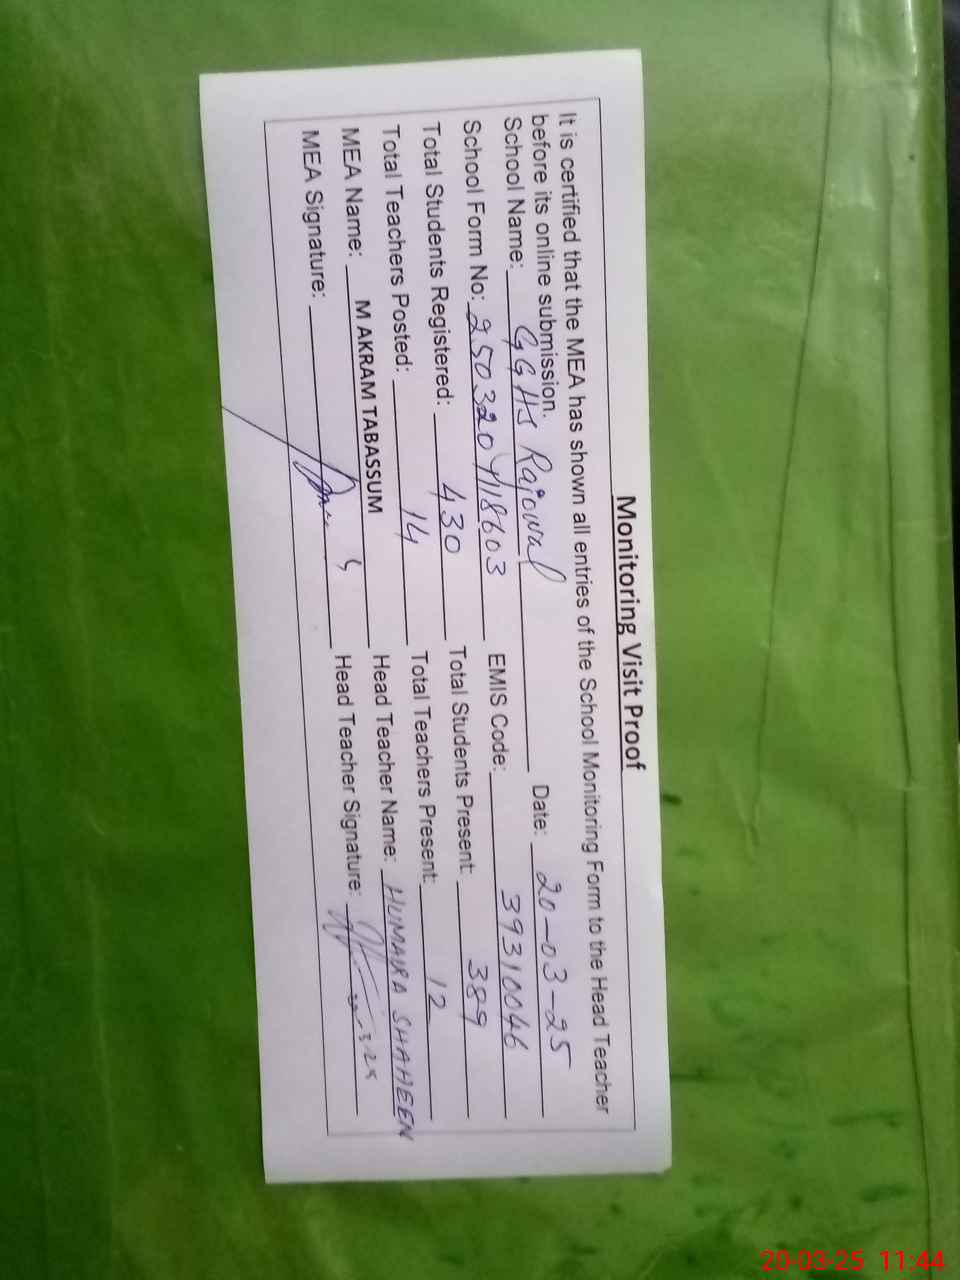 Monitoring Visit Proof
It is certified that the MEA has shown all entries of the School Monitoring Form to the Head Teacher
before its online submission.
School Name: GGHS Rajowal Date: 20-03-25
School Form No: 250320418603 EMIS Code: 39310046
Total Students Registered: 430 Total Students Present: 389
Total Teachers Posted: 14 Total Teachers Present: 12
MEA Name: M AKRAM TABASSUM Head Teacher Name: HUMAIRA SHAHEEN
MEA Signature: Head Teacher Signature:
20-03-25 11:44